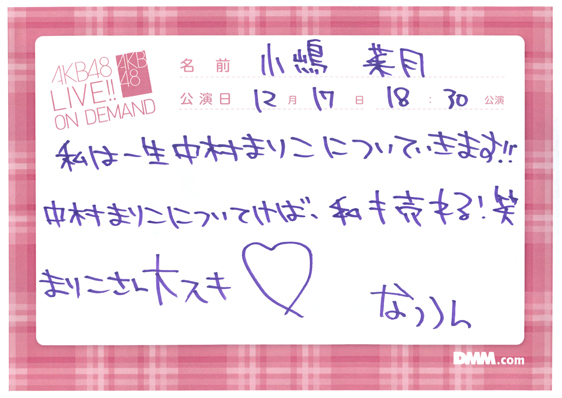 AKB48
LIVE!!
ON DEMAND
AKB
48
名前 小嶋 菜月
公演日 12月17日 18:30公演
私は一生中村まりこについていきます!!
中村まりこについてけば、私も売れる!笑
まりこさん大スキ♡
なっつん
DMM.com